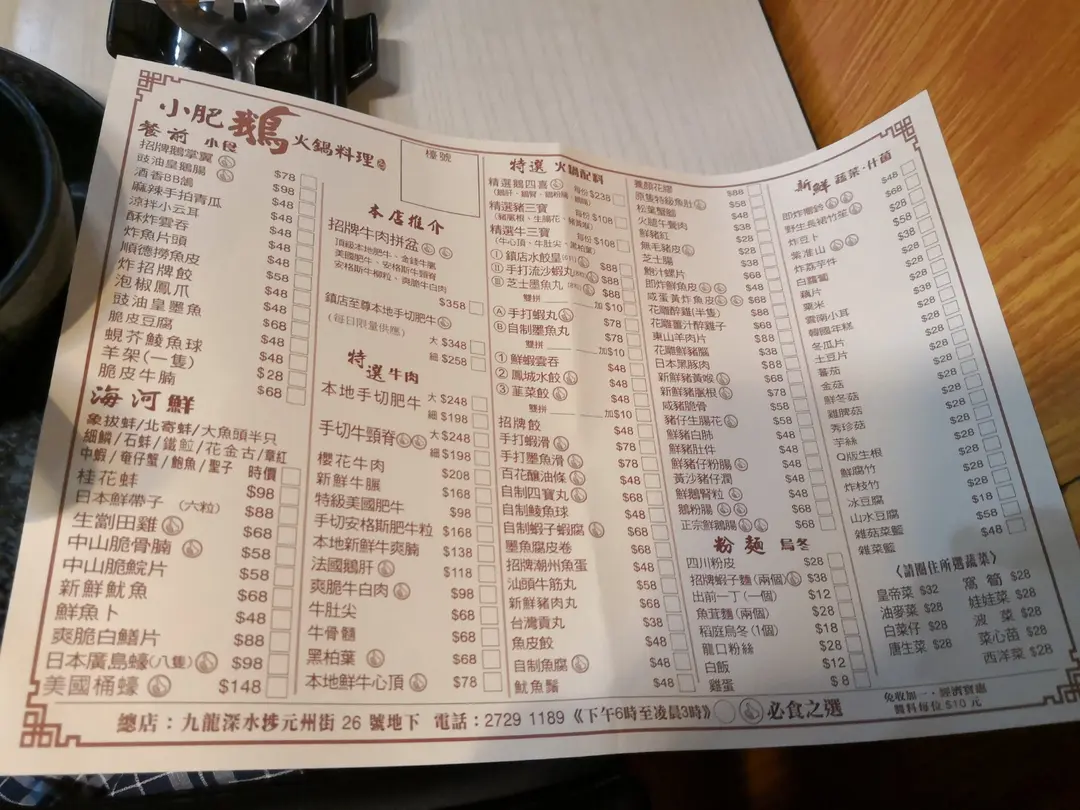 小肥鵝火鍋料理
檯號
餐前 小食
招牌鵝掌翼 $78
豉油皇鵝腸 $98
酒香BB鴿 $48
麻辣手拍青瓜 $48
涼拌小云耳 $48
酥炸雲吞 $48
炸魚片頭 $48
順德撈魚皮 $58
炸招牌餃 $48
泡椒鳳爪 $48
豉油皇墨魚 $68
脆皮豆腐 $48
蜆芥鯪魚球 $48
羊架(一隻) $28
脆皮牛腩 $68
海河鮮
象拔蚌/北寄蚌/大魚頭半只
細鱗/石蚌/鐵䱽/花金古/章紅
中蝦/奄仔蟹/鮑魚/聖子 時價
桂花蚌 $98
日本鮮帶子(六粒) $88
生劏田雞 $68
中山脆骨腩 $58
中山脆鯇片 $58
新鮮魷魚 $68
鮮魚卜 $48
爽脆白鱔片 $88
日本廣島蠔(八隻) $98
美國桶蠔 $148
本店推介
招牌牛肉拼盆
頂級本地肥牛、金錢牛𦟌
美國肥牛、安格斯牛頸脊
安格斯牛柳粒、爽脆牛白肉
$358
鎮店至尊本地手切肥牛
(每日限量供應) 大 $348
細 $258
特選 牛肉
本地手切肥牛 大 $248
細 $198
手切牛頸脊 大 $248
細 $198
櫻花牛肉 $208
新鮮牛𦟌 $168
特級美國肥牛 $98
手切安格斯肥牛粒 $168
本地新鮮牛爽腩 $138
法國鵝肝 $118
爽脆牛白肉 $98
牛肚尖 $68
牛骨髓 $68
黑柏葉 $68
本地鮮牛心頂 $78
特選 火鍋配料
精選鵝四喜 每份$238
精選豬三寶 每份$108
精選牛三寶 每份$108
(牛心頂、牛肚尖、黑柏葉)
Ⓘ 鎮店水餃皇 $88
Ⅱ 手打流沙蝦丸 $88
Ⅲ 芝士墨魚丸 $88
雙拼 加$10
Ⓐ 手打蝦丸 $78
Ⓑ 自製墨魚丸 $78
雙拼 加$10
① 鮮蝦雲吞 $48
② 鳳城水餃 $48
③ 韮菜餃 $48
雙拼 加$10
招牌餃 $48
手打蝦滑 $78
手打墨魚滑 $78
百花釀油條 $68
自制四寶丸 $68
自制鯪魚球 $48
自制蝦子蝦腐 $68
墨魚腐皮卷 $68
招牌潮州魚蛋 $48
汕頭牛筋丸 $58
新鮮豬肉丸 $68
台灣貢丸 $38
魚皮餃 $48
自制魚腐 $48
魷魚鬚 $48
養顏花膠 $88
原隻特級魚肚 $58
松葉蟹鉗 $48
火腿午餐肉 $38
鮮豬紅 $28
無毛豬皮 $28
芝士腸 $38
鮑汁螺片 $68
即炸鮮魚皮 $48
咸蛋黃炸魚皮 $68
花雕醉雞(半隻) $88
花雕薑汁醉雞子 $68
東山羊肉片 $88
花雕鮮豬腦 $38
日本黑豚肉 $88
新鮮豬黃喉 $68
新鮮豬䐁根 $78
咸豬脆骨 $58
豬仔生腸花 $58
鮮豬白肺 $48
鮮豬肚件 $48
鮮豬仔粉腸 $48
黃沙豬仔潤 $48
鮮鵝腎粒 $48
鵝粉腸 $68
正宗鮮鵝腸 $68
粉麵 烏冬
四川粉皮 $28
招牌蝦子麵(兩個) $38
出前一丁(一個) $12
魚茸麵(兩個) $28
稻庭烏冬(1個) $18
龍口粉絲 $28
白飯 $12
雞蛋 $8
新鮮 蔬菜·什菌
即炸響鈴 $48
野生長裙竹笙 $68
炸豆卜 $38
紫淮山 $58
炸荔芋件 $38
白蘿蔔 $28
藕片 $28
粟米 $38
雲南小耳 $28
韓國年糕 $28
冬瓜片 $28
土豆片 $28
蕃茄 $28
金菇 $28
鮮冬菇 $28
雞髀菇 $28
秀珍菇 $28
芋絲 $28
Q版生根 $28
鮮腐竹 $28
炸枝竹 $28
冰豆腐 $28
山水豆腐 $18
雜菇菜籃 $58
雜菜籃 $48
〈請圈住所選蔬菜〉
皇帝菜 $32 萵筍 $28
油麥菜 $28 娃娃菜 $28
白菜仔 $28 波菜 $28
唐生菜 $28 菜心苗 $28
西洋菜 $28
總店：九龍深水埗元州街 26 號地下 電話：2729 1189《下午6時至凌晨3時》 必食之選
免收加一·經濟實惠
醬料每位 $10 元